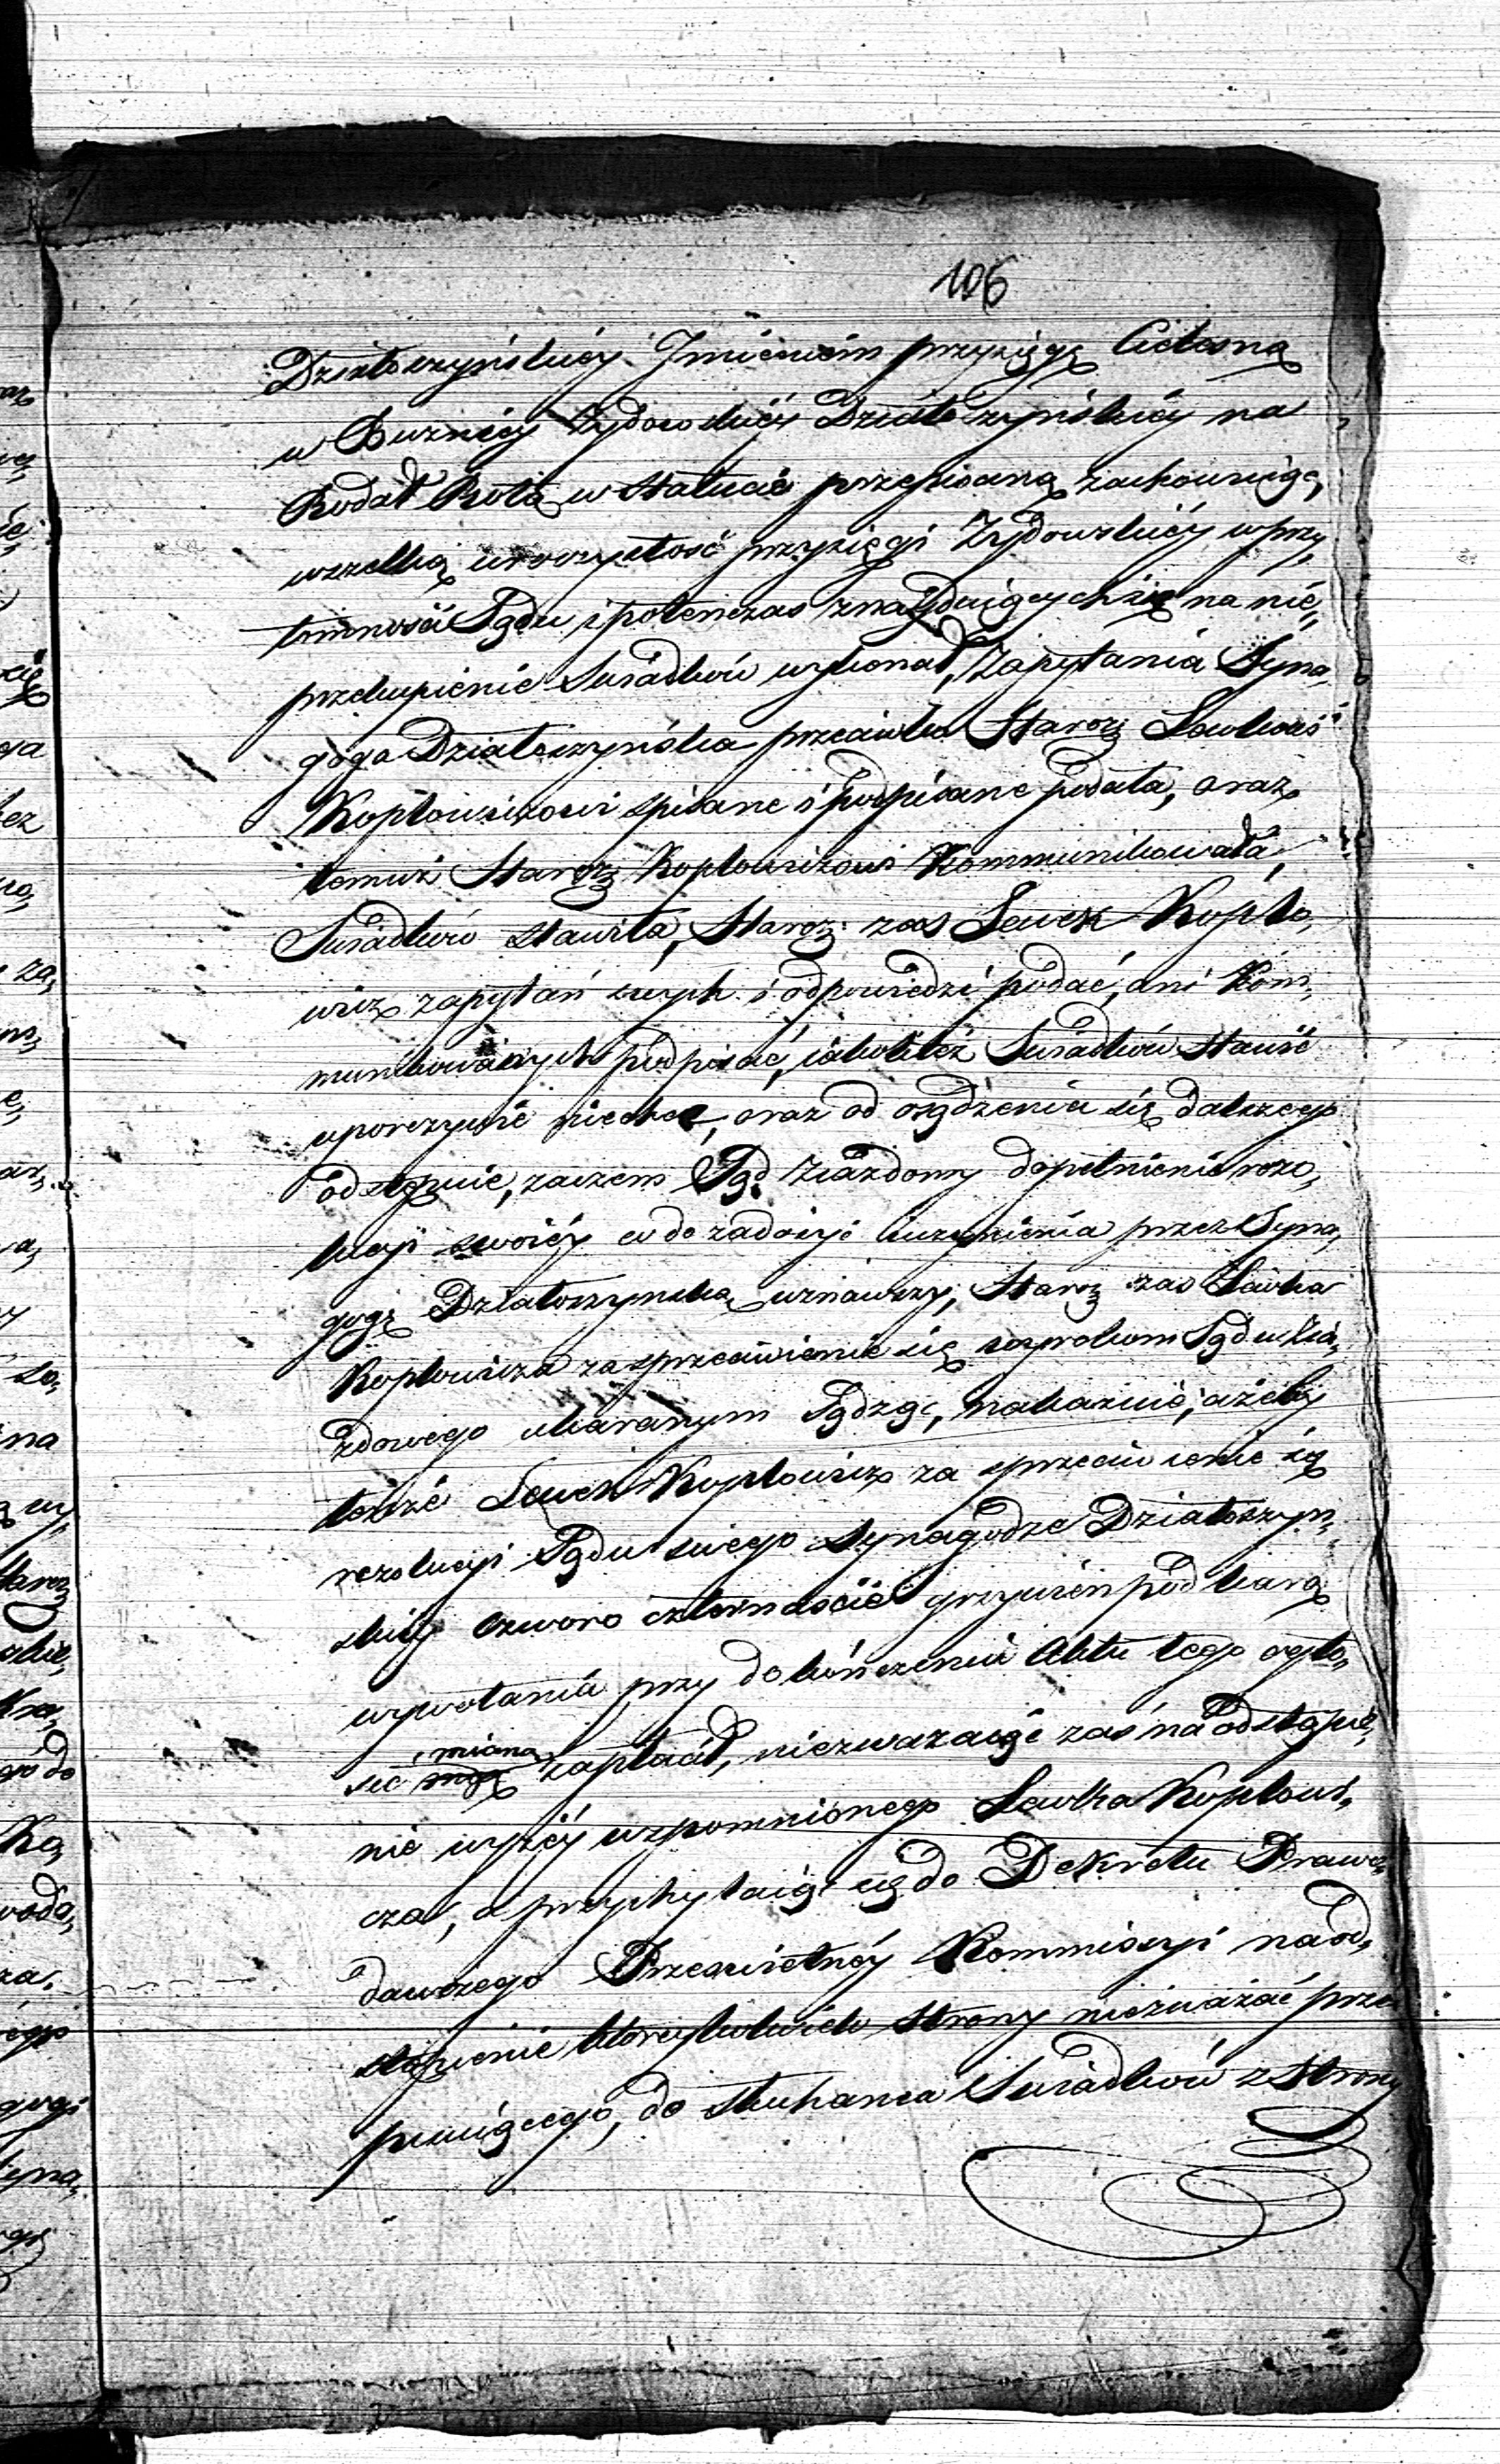 106
Działoszyńskiéy Imieniem przysięgę Cielesną
w Buźnicy Żydowskiéy Działoszyńskiéy na
Rodał Rotą w Statucie przepisaną zachowuiąc,
wszelką uroczystość przysięgi Żydowskiéy w przy„
tomności Sądu i potenczas znayduiących się na nie„
przekupienie Swiadków wykonał, Zapytania Syna„
goga Działoszyńska przeciwko Staroz Lewkowi
Koplowiczowi spisane i podpisane podała, oraz
temuż Staroz Koplowiczowi Kommunikowała,
Swiadków stawiła, Staroz: zas Lewek Koplo„
wicz zapytań swych i odpowiedzi podać, ani Kom„
munikowanych podpisać, iakoteż Swiadków stawić
uporczywie niechce, oraz od sądzenia się dalszego
odstępuie, zaczem Sąd Ziazdowy dopełnienie rezo„
lucyi swoiéy co do zadosyć uczynienia przez Syna„
gogę Działoszynską uznawszy, Staroz zas Lewka
Koplowicza za sprzeciwienie się wyrokom Sądu Zia„
zdowego ukaranym Sądząc, nakazuie, ażeby
tenże Lewek Koplowicz za sprzeciwienie się
rezolucyi Sądu swego Synagodze Działoszyn„
skiéy czworo czternaście grzywien pod karą
wywołania przy dokończeniu Aktu tego ogło„
sic mianą zapłacił, niezwazaiąc zas na odstąpie„
nie wyżéy wspomnionego Lewka Koplowi„
cza, a przychylaiąc się do Dekretu Prawo„
dawczego Przeswietnéy Kommissyi na od„
stąpienie któreykolwiek strony nieżważać prze
pisuiącego, do słuchania Swiadków z Strony